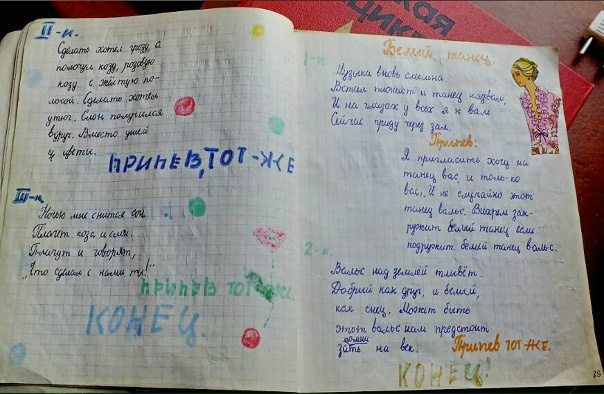 II-к.
Сделать хотел грозу, а
получил козу, розовую
козу с жёлтую по-
лосой. Сделать хотел
утюг. Слон получился
вдруг. Вместо ушей
у цветы.
ПРИПЕВ, ТОТ-ЖЕ
III-к.
Ночью мне снится сон
Плачет коза и слон.
Плачут и говорят,
"Что сделал с нами ты!"
ПРИПЕВ ТОТ-ЖЕ.
КОНЕЦ.
Белый танец.
1-к
Музыка вновь слышна
Встал пианист и танец назван,
И на глазах у всех я к вам
Сейчас приду через зал.
Припев:
Я пригласить хочу на
танец вас, и толь-ко
вас, И не случайно этот
танец вальс. Вихрем зак-
ружит белый танец если
подружит белый танец вальс.
2-к.
Вальс над землёй плывёт.
Добрый как друг, и белый,
как снег. Может быть
этот вальс нам предстоит
помнить на век. Припев ТОТ-ЖЕ.
КОНЕЦ!